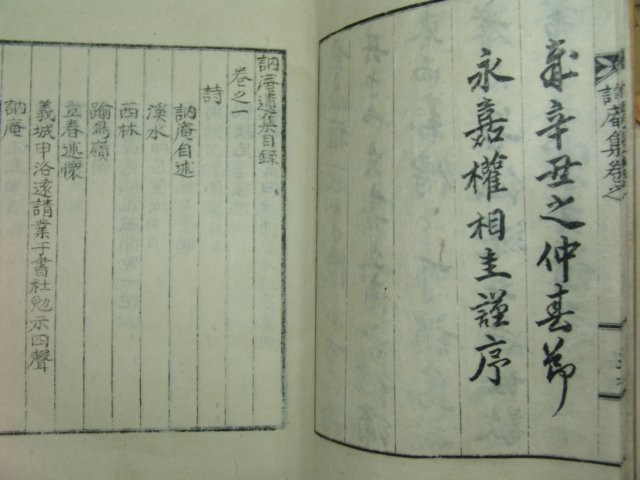 訥庵集卷之
歲辛丑之仲春節
永嘉權相圭謹序
訥庵遺集目錄
卷之一
詩
訥庵自述
溪水
西林
踰鳥嶺
立春述懷
義城申洛遠請業于書社勉示四聲
訥庵